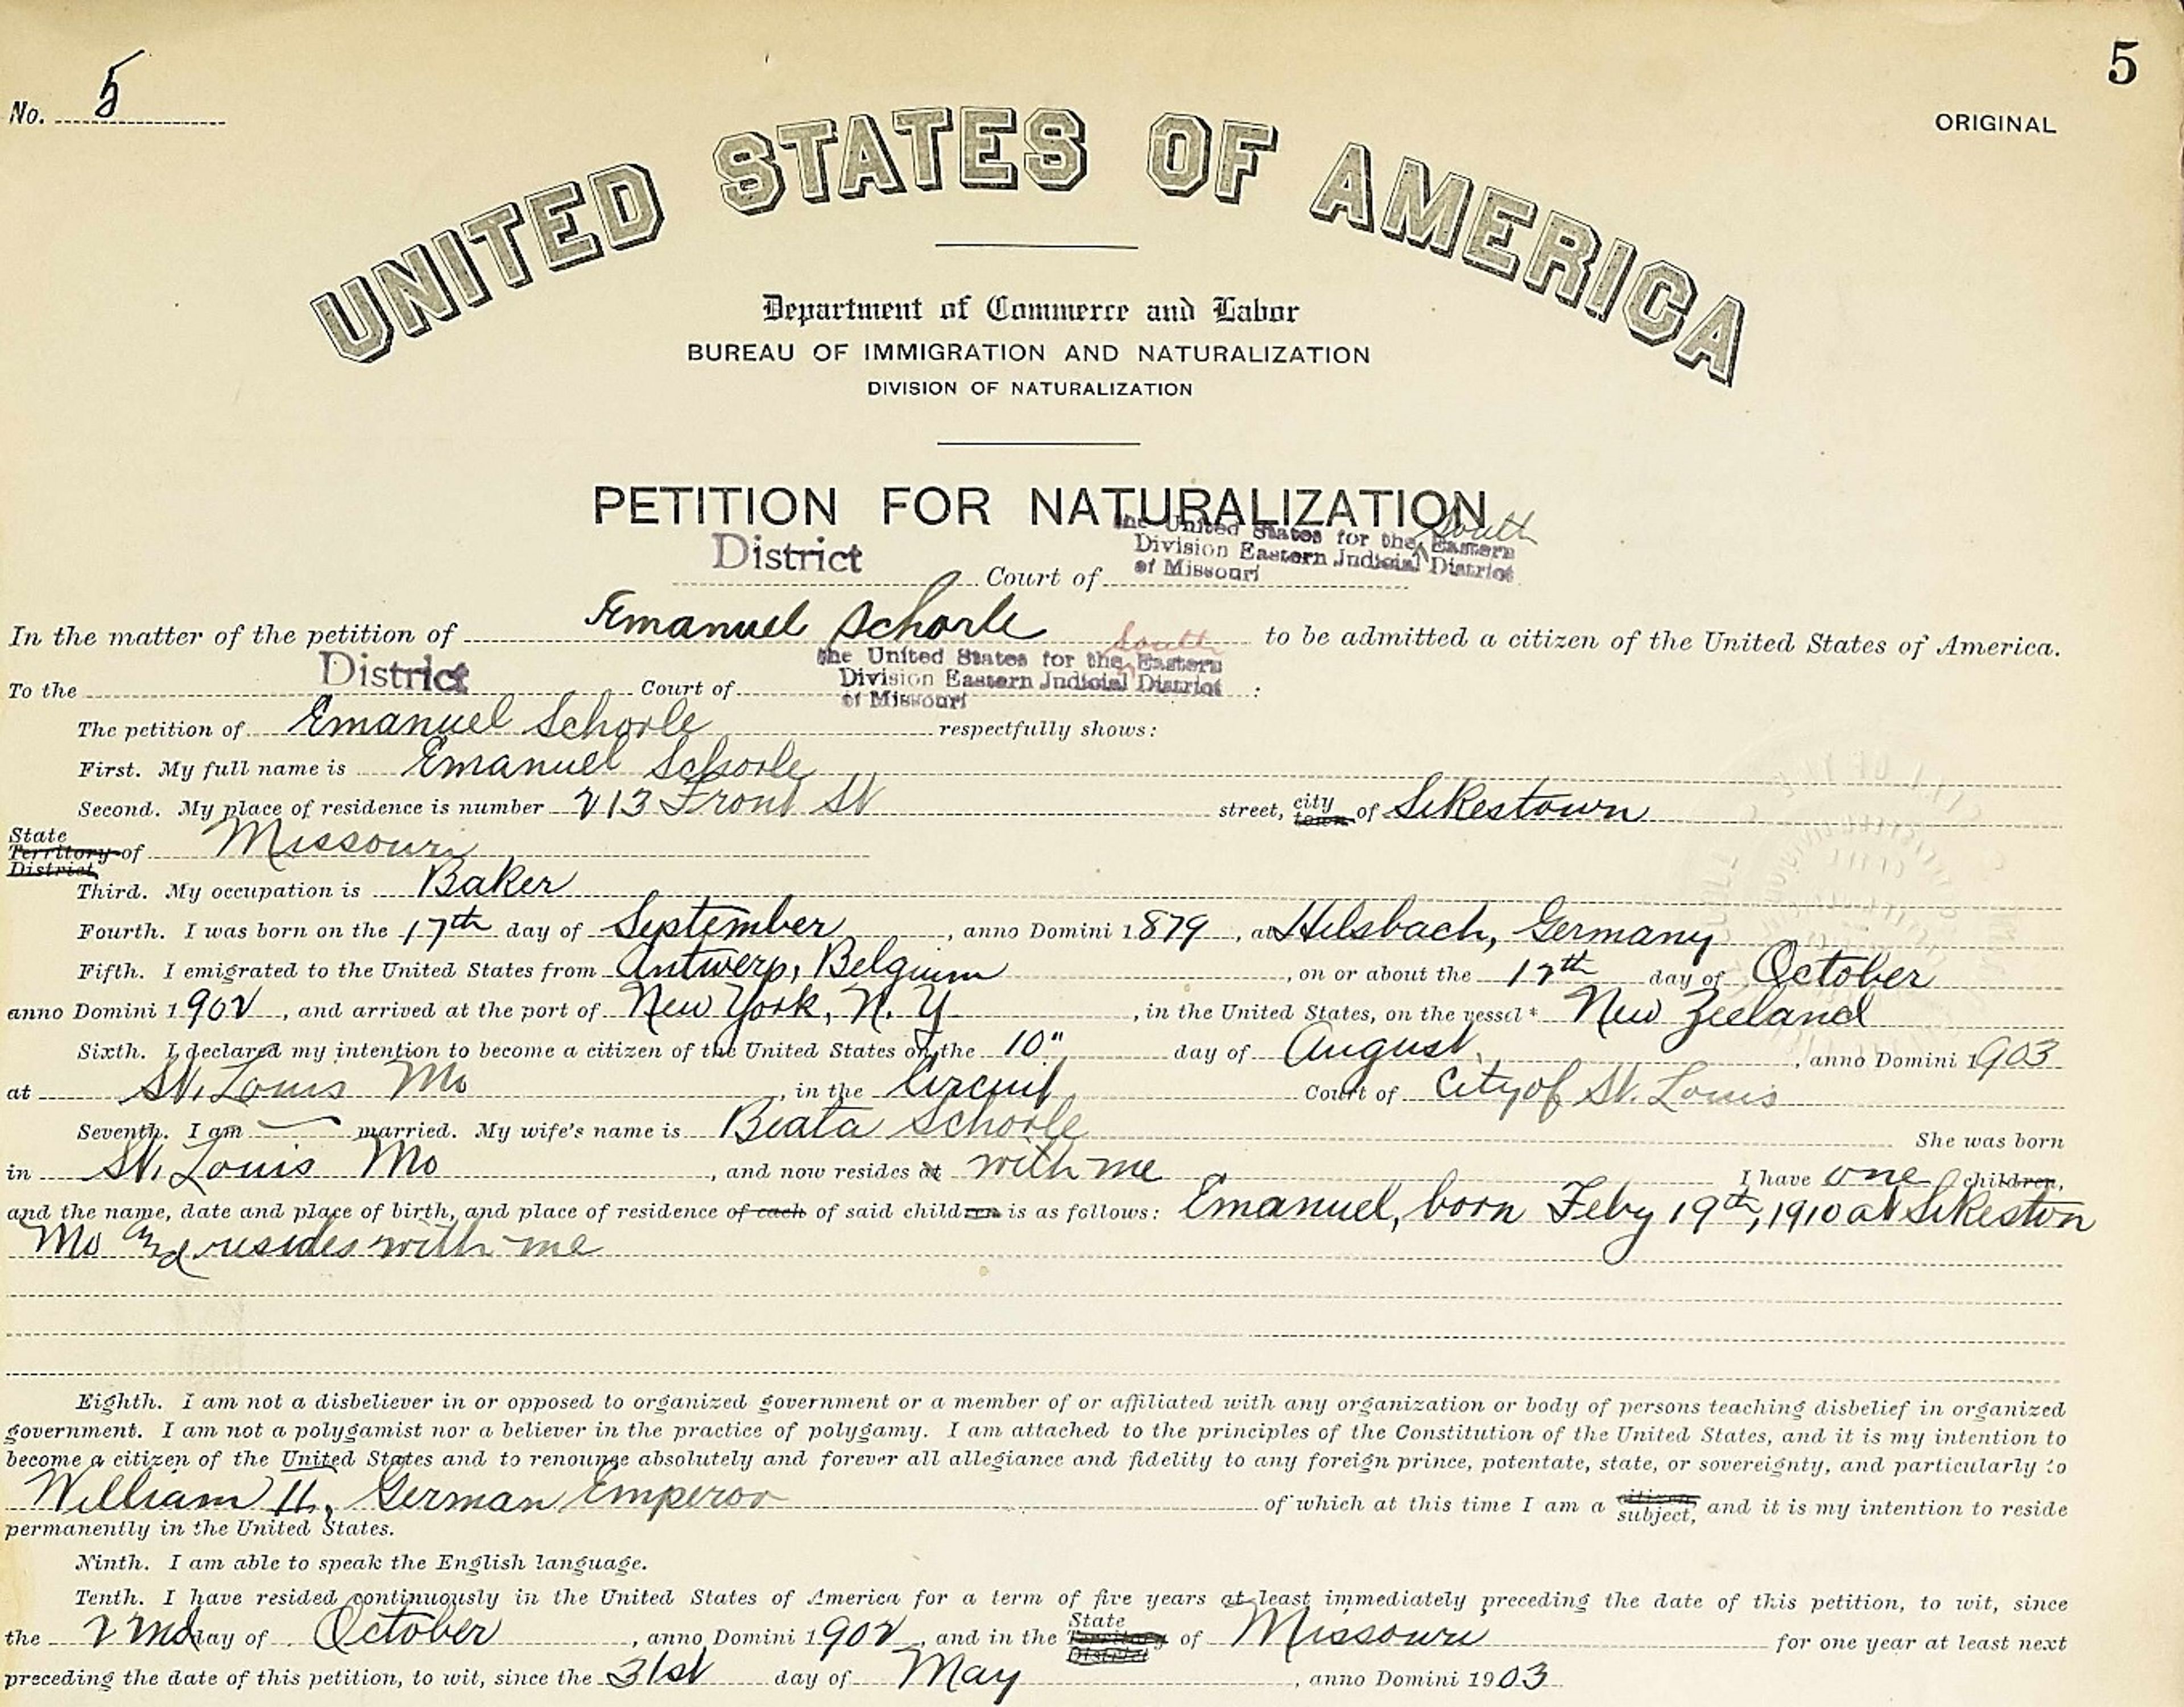 No. 5
5
ORIGINAL
UNITED STATES OF AMERICA
Department of Commerce and Labor
BUREAU OF IMMIGRATION AND NATURALIZATION
DIVISION OF NATURALIZATION
PETITION FOR NATURALIZATION
District Court of the United States for the South Eastern Division Eastern Judicial District of Missouri
In the matter of the petition of Emanuel Schorle to be admitted a citizen of the United States of America.
To the District Court of the United States for the South Eastern Division Eastern Judicial District of Missouri :
The petition of Emanuel Schorle respectfully shows:
First. My full name is Emanuel Schorle
Second. My place of residence is number 213 Front St street, city town of Sikestown
State Territory District of Missouri
Third. My occupation is Baker
Fourth. I was born on the 17th day of September, anno Domini 1879, at Hilsbach, Germany
Fifth. I emigrated to the United States from Antwerp, Belgium, on or about the 12th day of October
anno Domini 1902, and arrived at the port of New York, N.Y., in the United States, on the vessel* New Zeeland
Sixth. I declared my intention to become a citizen of the United States on the 10" day of August, anno Domini 1903
at St. Louis Mo, in the Circuit Court of City of St. Louis
Seventh. I am married. My wife's name is Beata Schorle She was born
in St. Louis Mo, and now resides at with me I have one children,
and the name, date and place of birth, and place of residence of each of said children is as follows: Emanuel, born Feby 19th, 1910 at Sikeston
Mo and resides with me
Eighth. I am not a disbeliever in or opposed to organized government or a member of or affiliated with any organization or body of persons teaching disbelief in organized
government. I am not a polygamist nor a believer in the practice of polygamy. I am attached to the principles of the Constitution of the United States, and it is my intention to
become a citizen of the United States and to renounce absolutely and forever all allegiance and fidelity to any foreign prince, potentate, state, or sovereignty, and particularly to
William II, German Emperor of which at this time I am a citizen subject, and it is my intention to reside
permanently in the United States.
Ninth. I am able to speak the English language.
Tenth. I have resided continuously in the United States of America for a term of five years at least immediately preceding the date of this petition, to wit, since
the 22nd day of October, anno Domini 1902, and in the State Territory District of Missouri for one year at least next
preceding the date of this petition, to wit, since the 31st day of May, anno Domini 1903